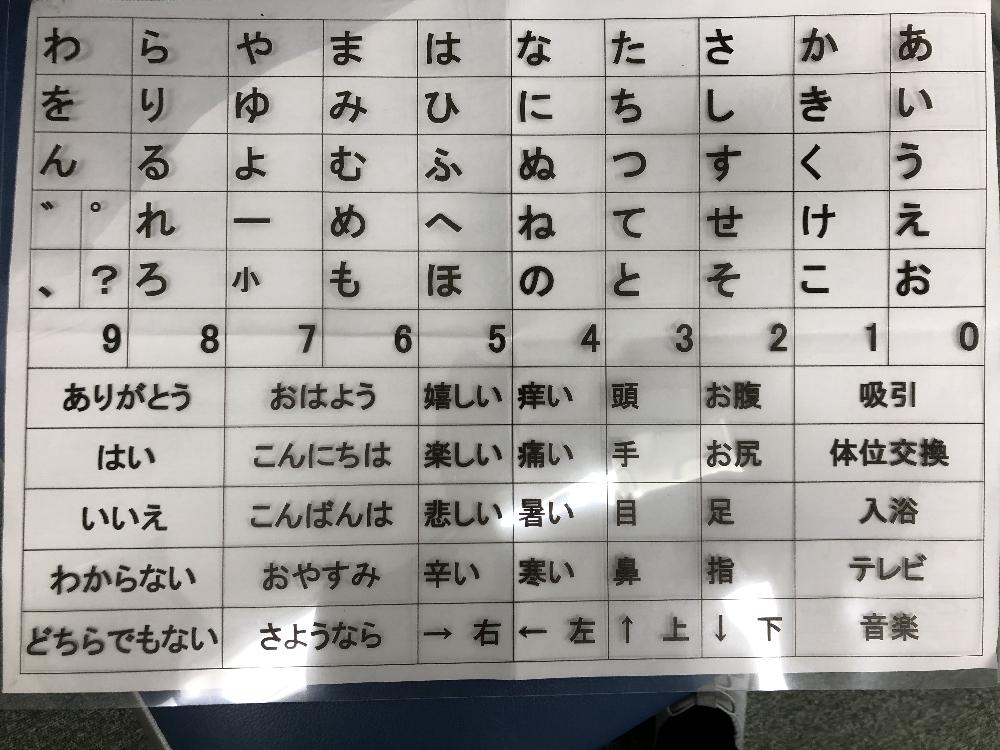 わ ら や ま は な た さ か あ
を り ゆ み ひ に ち し き い
ん る よ む ふ ぬ つ す く う
゛ ゜ れ ー め へ ね て せ け え
、 ? ろ 小 も ほ の と そ こ お
9 8 7 6 5 4 3 2 1 0
ありがとう おはよう 嬉しい 痒い 頭 お腹 吸引
はい こんにちは 楽しい 痛い 手 お尻 体位交換
いいえ こんばんは 悲しい 暑い 目 足 入浴
わからない おやすみ 辛い 寒い 鼻 指 テレビ
どちらでもない さようなら → 右 ← 左 ↑ 上 ↓ 下 音楽